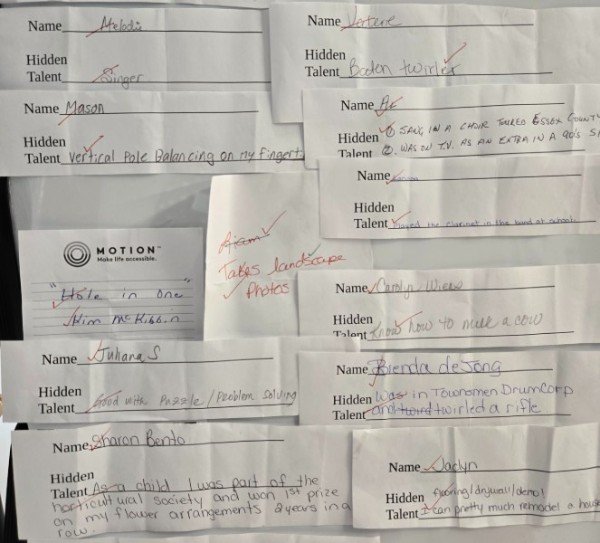 Name Melodi
Hidden
Talent Singer
Name Verterie
Hidden
Talent Baton twirler
Name Mason
Hidden
Talent Vertical Pole Balancing on my fingert
Name
Hidden ① SANG IN A CHOIR TOURED ESSEX COUNTY
Talent ②. WAS ON T.V. AS AN EXTRA IN A 90's S
Name
Hidden
Talent Played the clarinet in the band at school
MOTION™
Make life accessible.
"Hole in one"
Kim McKibbin
Takes landscape
Photos
Name Carolyn Wiens
Hidden
Talent Know how to milk a cow
Name Juliana S
Hidden
Talent Good with Puzzle / Problem Solving
Name Brenda de Jong
Hidden Was in Townsmen DrumCorp
Talent and twird twirled a rifle
Name Sharon Bento
Hidden
Talent As a child I was part of the
horticultural society and won 1st prize
on my flower arrangements 2 years in a
row.
Name Jaclyn
Hidden flooring/drywall/demo!
Talent I can pretty much remodel a house